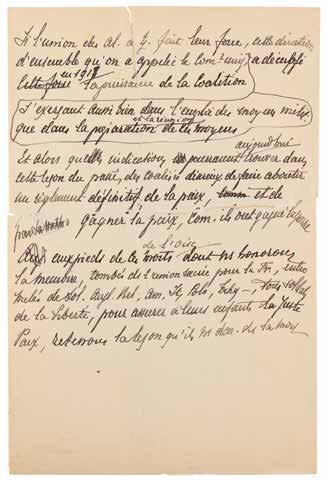 Si l'union des Al. a fait leur force, cette direction
d'ensemble qu'on a appelée le Com. uniq a décuplé
cette force en 1918 la puissance de la Coalition
S'exerçant aussi bien dans l'emploi des moyens milit.
que dans la préparation et la réunion de ces moyens
Et alors quelle indication pourraient trouver aujourd'hui dans
cette leçon du passé, des coalisés désireux de faire aboutir
un règlement définitif de la paix, et de
gagner la paix, com. ils ont gagné la guerre
de l'Oise
Aux pieds de ces morts dont ns honorons
la mémoire, tombés de l'union sacrée pour la Fr., entre
mêlés de sol. Angl. Bel. Am. It. Polo, Tchq –, tous soldats
de la liberté, pour assurer à leurs enfants la Juste
Paix, retenons la leçon qu'ils ns don.